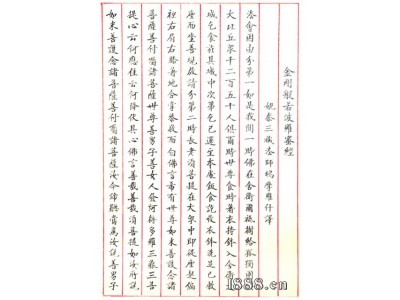 金剛般若波羅蜜經
姚秦三藏法師鳩摩羅什譯
法會因由分第一如是我聞一時佛在舍衛國祇樹給孤獨園與
大比丘衆千二百五十人俱爾時世尊食時著衣持鉢入舍衛大
城乞食於其城中次第乞已還至本處飯食訖收衣鉢洗足已敷
座而坐善現啟請分第二時長老須菩提在大衆中即從座起偏
袒右肩右膝著地合掌恭敬而白佛言希有世尊如來善護念諸
菩薩善付囑諸菩薩世尊善男子善女人發阿耨多羅三藐三菩
提心云何應住云何降伏其心佛言善哉善哉須菩提如汝所說
如來善護念諸菩薩善付囑諸菩薩汝今諦聽當為汝說善男子
1888.cn